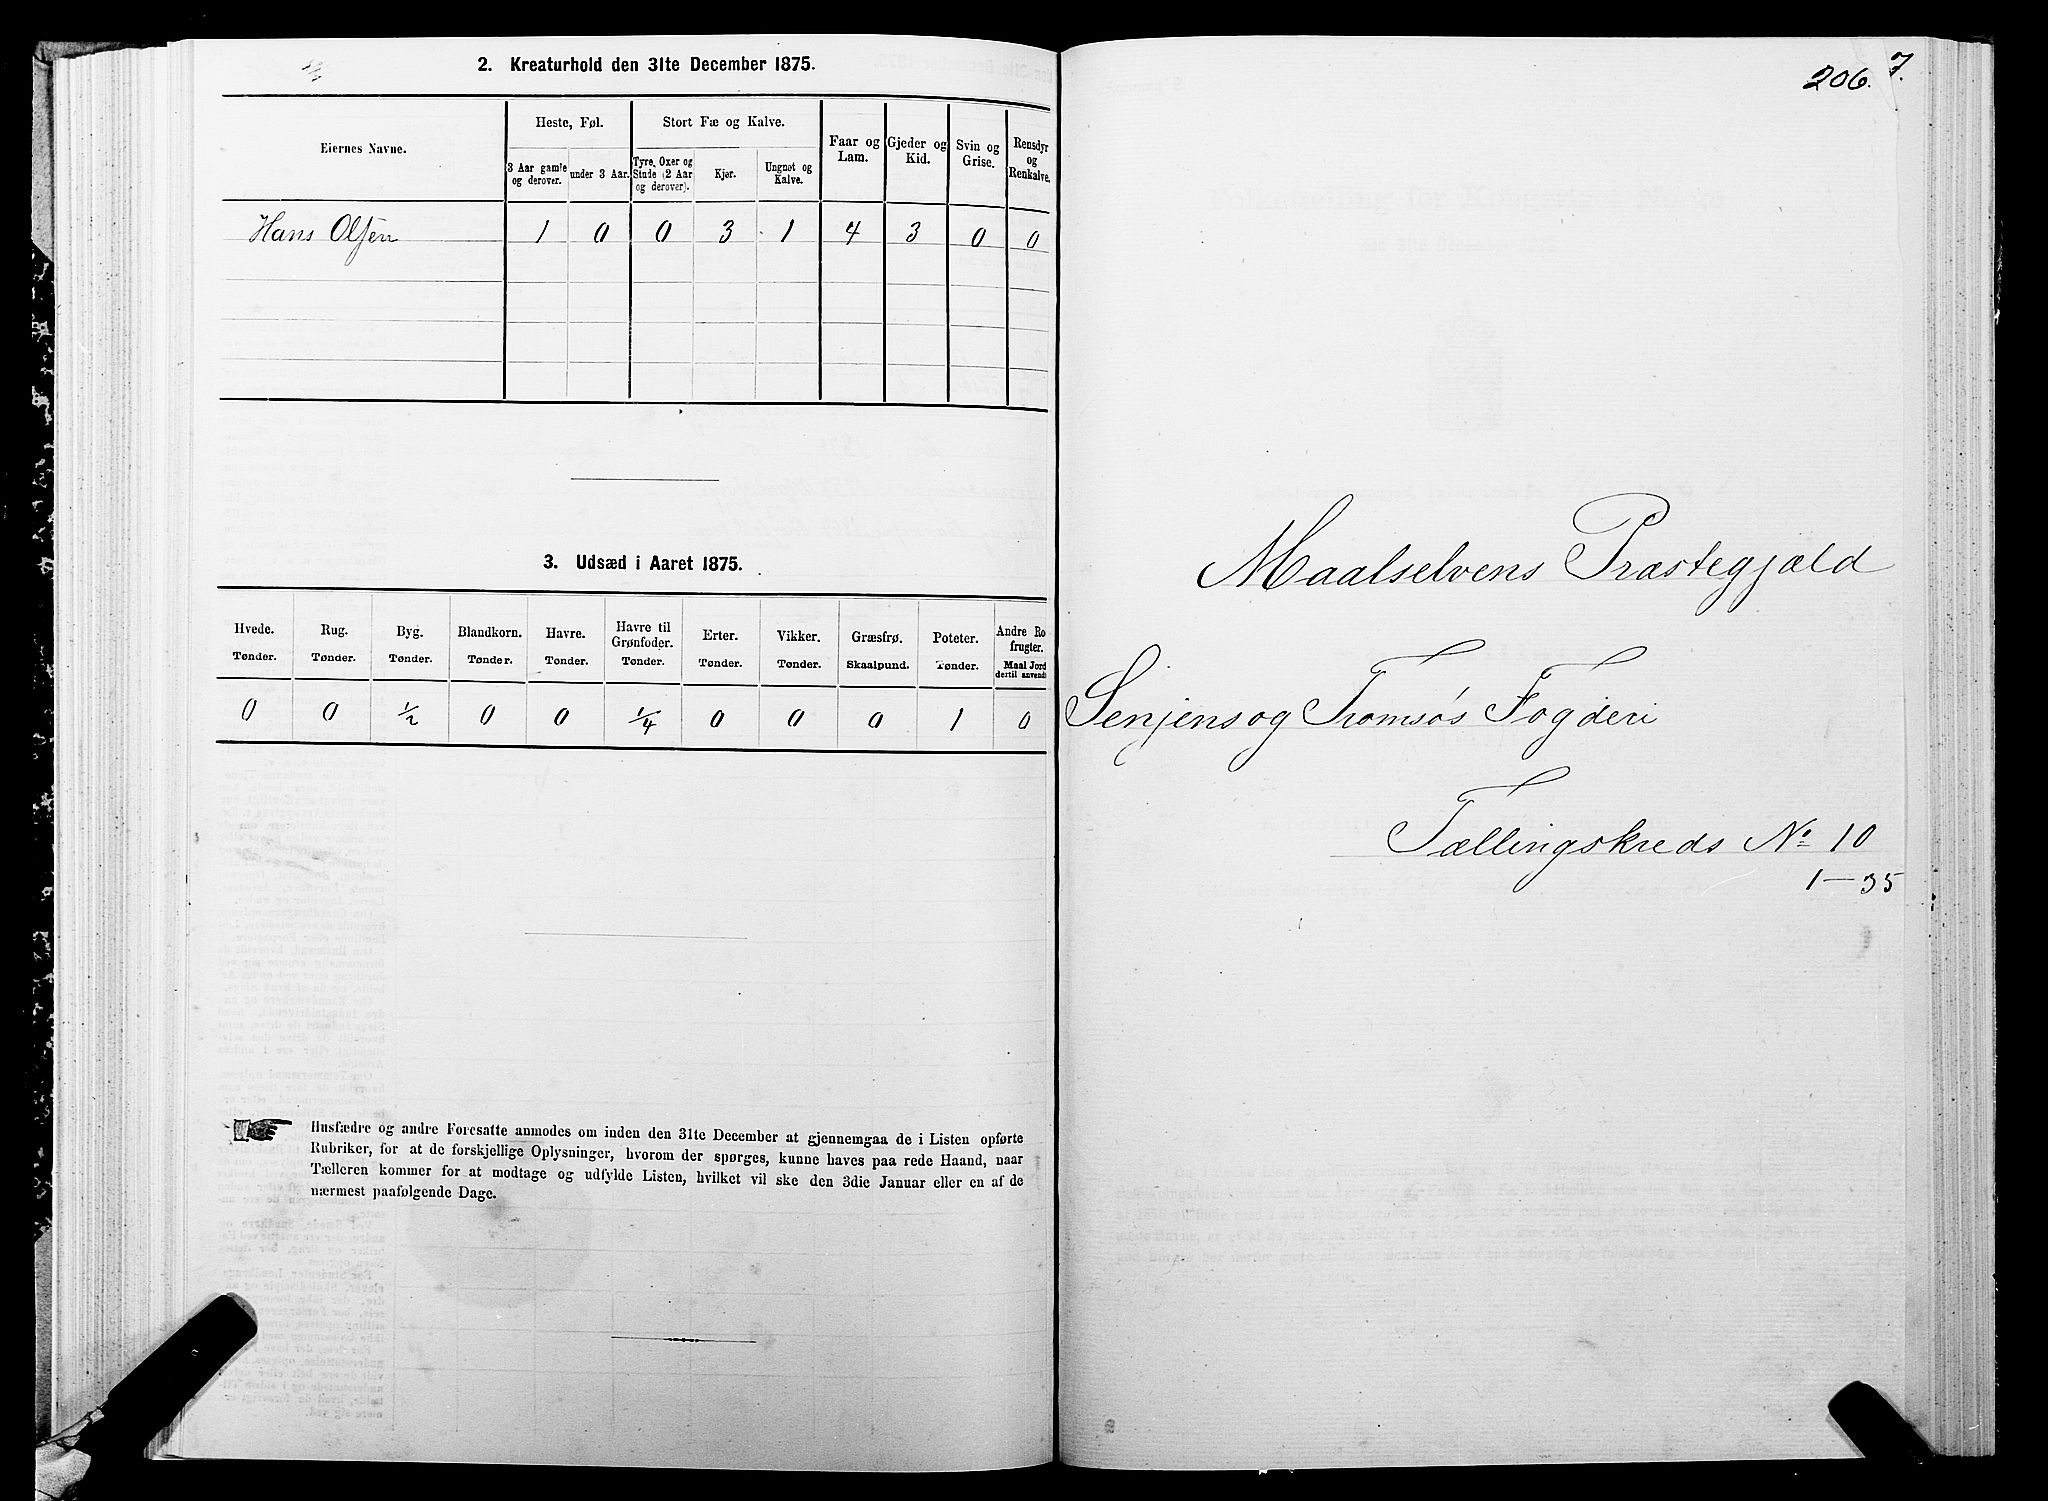 2. Kreaturhold den 31te December 1875.
Eiernes Navne.
Heste, Føl.
Stort Fæ og Kalve.
Faar og
Lam.
Gjeder og
Kid.
Svin og
Grise.
Rensdyr
og
Renkalve.
3 Aar gamle
og derover.
under 3 Aar.
Tyre, Oxer og
Stude (2 Aar
og derover).
Kjør.
Ungnøt og
Kalve.
Hans Olsen 1 0 0 3 1 4 3 0 0
3. Udsæd i Aaret 1875.
Hvede.
Tønder.
Rug.
Tønder.
Byg.
Tønder.
Blandkorn.
Tønder.
Havre.
Tønder.
Havre til
Grønfoder.
Tønder.
Erter.
Tønder.
Vikker.
Tønder.
Græsfrø.
Skaalpund.
Poteter.
Tønder.
Andre Ro
frugter.
Maal Jord
dertil anvend
0 0 1/2 0 0 1/4 0 0 0 1 0
Husfædre og andre Foresatte anmodes om inden den 31te December at gjennemgaa de i Listen opførte
Rubriker, for at de forskjellige Oplysninger, hvorom der spørges, kunne haves paa rede Haand, naar
Tælleren kommer for at modtage og udfylde Listen, hvilket vil ske den 3die Januar eller en af de
nærmest paafølgende Dage.
206. 7.
Maalselvens Præstegjæld
Senjens og Tromsøs Fogderi
Tællingskreds No 10
1-35